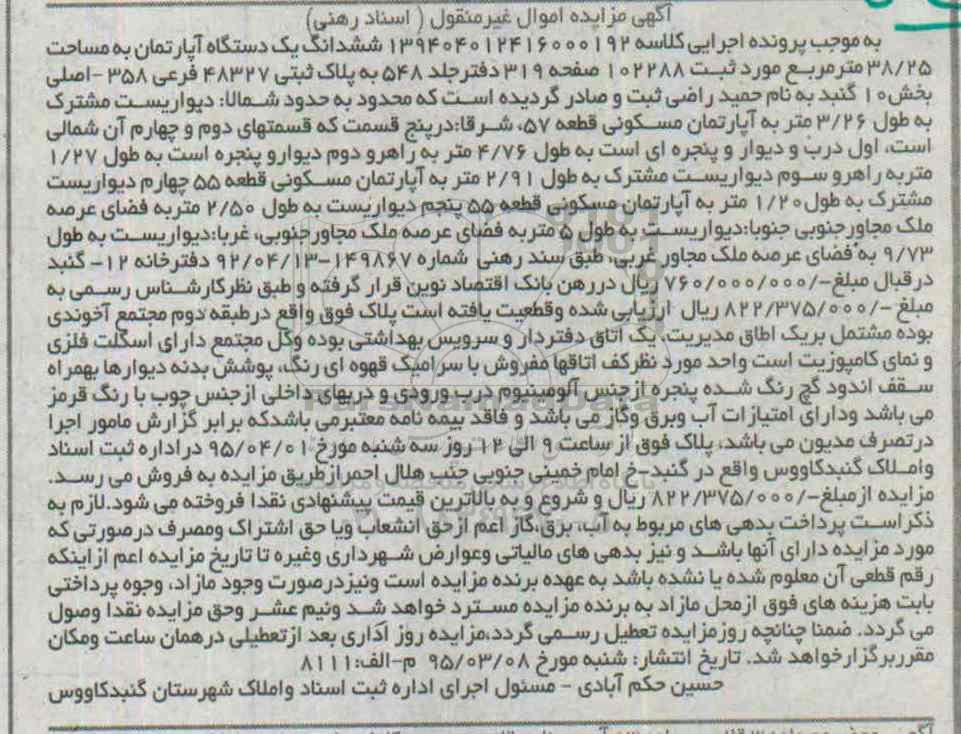 آگهی مزایده اموال غیرمنقول ( اسناد رهنی)
به موجب پرونده اجرایی کلاسه ۱۳۹۴۰۴۰۱۲۴۱۶۰۰۰۱۹۲ ششدانگ یک دستگاه آپارتمان به مساحت
۳۸/۲۵ مترمربع مورد ثبت ۱۰۲۲۸۸ صفحه ۳۱۹ دفترجلد ۵۴۸ به پلاک ثبتی ۴۸۳۲۷ فرعی ۳۵۸ -اصلی
بخش۱۰ گنبد به نام حمید راضی ثبت و صادر گردیده است که محدود به حدود شمالا: دیواریست مشترک
به طول ۳/۲۶ متر به آپارتمان مسکونی قطعه ۵۷، شرقا:درپنج قسمت که قسمتهای دوم و چهارم آن شمالی
است، اول درب و دیوار و پنجره ای است به طول ۴/۷۶ متر به راهرو دوم دیوارو پنجره است به طول ۱/۲۷
متربه راهرو سوم دیواریست مشترک به طول ۲/۹۱ متر به آپارتمان مسکونی قطعه ۵۵ چهارم دیواریست
مشترک به طول۱/۲۰ متر به آپارتمان مسکونی قطعه ۵۵ پنجم دیواریست به طول ۲/۵۰ متربه فضای عرصه
ملک مجاورجنوبی جنوبا:دیواریست به طول ۵ متربه فضای عرصه ملک مجاورجنوبی، غربا:دیواریست به طول
۹/۷۳ به فضای عرصه ملک مجاور غربی، طبق سند رهنی شماره ۱۴۹۸۶۷-۹۲/۰۴/۱۳ دفترخانه ۱۲- گنبد
درقبال مبلغ-/۷۶۰/۰۰۰/۰۰۰ ریال دررهن بانک اقتصاد نوین قرار گرفته و طبق نظرکارشناس رسمی به
مبلغ -/۸۲۲/۳۷۵/۰۰۰ ریال ارزیابی شده وقطعیت یافته است پلاک فوق واقع درطبقه دوم مجتمع آخوندی
بوده مشتمل بریک اطاق مدیریت، یک اتاق دفتردار و سرویس بهداشتی بوده وکل مجتمع دارای اسکلت فلزی
و نمای کامپوزیت است واحد مورد نظرکف اتاقها مفروش با سرامیک قهوه ای رنگ، پوشش بدنه دیوارها بهمراه
سقف اندود گچ رنگ شده پنجره ازجنس آلومینیوم درب ورودی و دربهای داخلی ازجنس چوب با رنگ قرمز
می باشد ودارای امتیازات آب وبرق وگاز می باشد و فاقد بیمه نامه معتبرمی باشدکه برابر گزارش مامور اجرا
درتصرف مدیون می باشد، پلاک فوق از ساعت ۹ الی ۱۲ روز سه شنبه مورخ ۹۵/۰۴/۰۱ دراداره ثبت اسناد
واملاک گنبدکاووس واقع در گنبد-خ امام خمینی جنوبی جنب هلال احمرازطریق مزایده به فروش می رسد.
مزایده ازمبلغ-/۸۲۲/۳۷۵/۰۰۰ ریال و شروع و به بالاترین قیمت پیشنهادی نقدا فروخته می شود.لازم به
ذکراست پرداخت بدهی های مربوط به آب، برق،گاز اعم ازحق انشعاب ویا حق اشتراک ومصرف درصورتی که
مورد مزایده دارای آنها باشد و نیز بدهی های مالیاتی وعوارض شهرداری وغیره تا تاریخ مزایده اعم ازاینکه
رقم قطعی آن معلوم شده یا نشده باشد به عهده برنده مزایده است ونیزدرصورت وجود مازاد، وجوه پرداختی
بابت هزینه های فوق ازمحل مازاد به برنده مزایده مسترد خواهد شد ونیم عشر وحق مزایده نقدا وصول
می گردد. ضمنا چنانچه روزمزایده تعطیل رسمی گردد،مزایده روز اداری بعد ازتعطیلی درهمان ساعت ومکان
مقرربرگزارخواهد شد. تاریخ انتشار: شنبه مورخ ۹۵/۰۳/۰۸ م-الف:۸۱۱۱
حسین حکم آبادی - مسئول اجرای اداره ثبت اسناد واملاک شهرستان گنبدکاووس